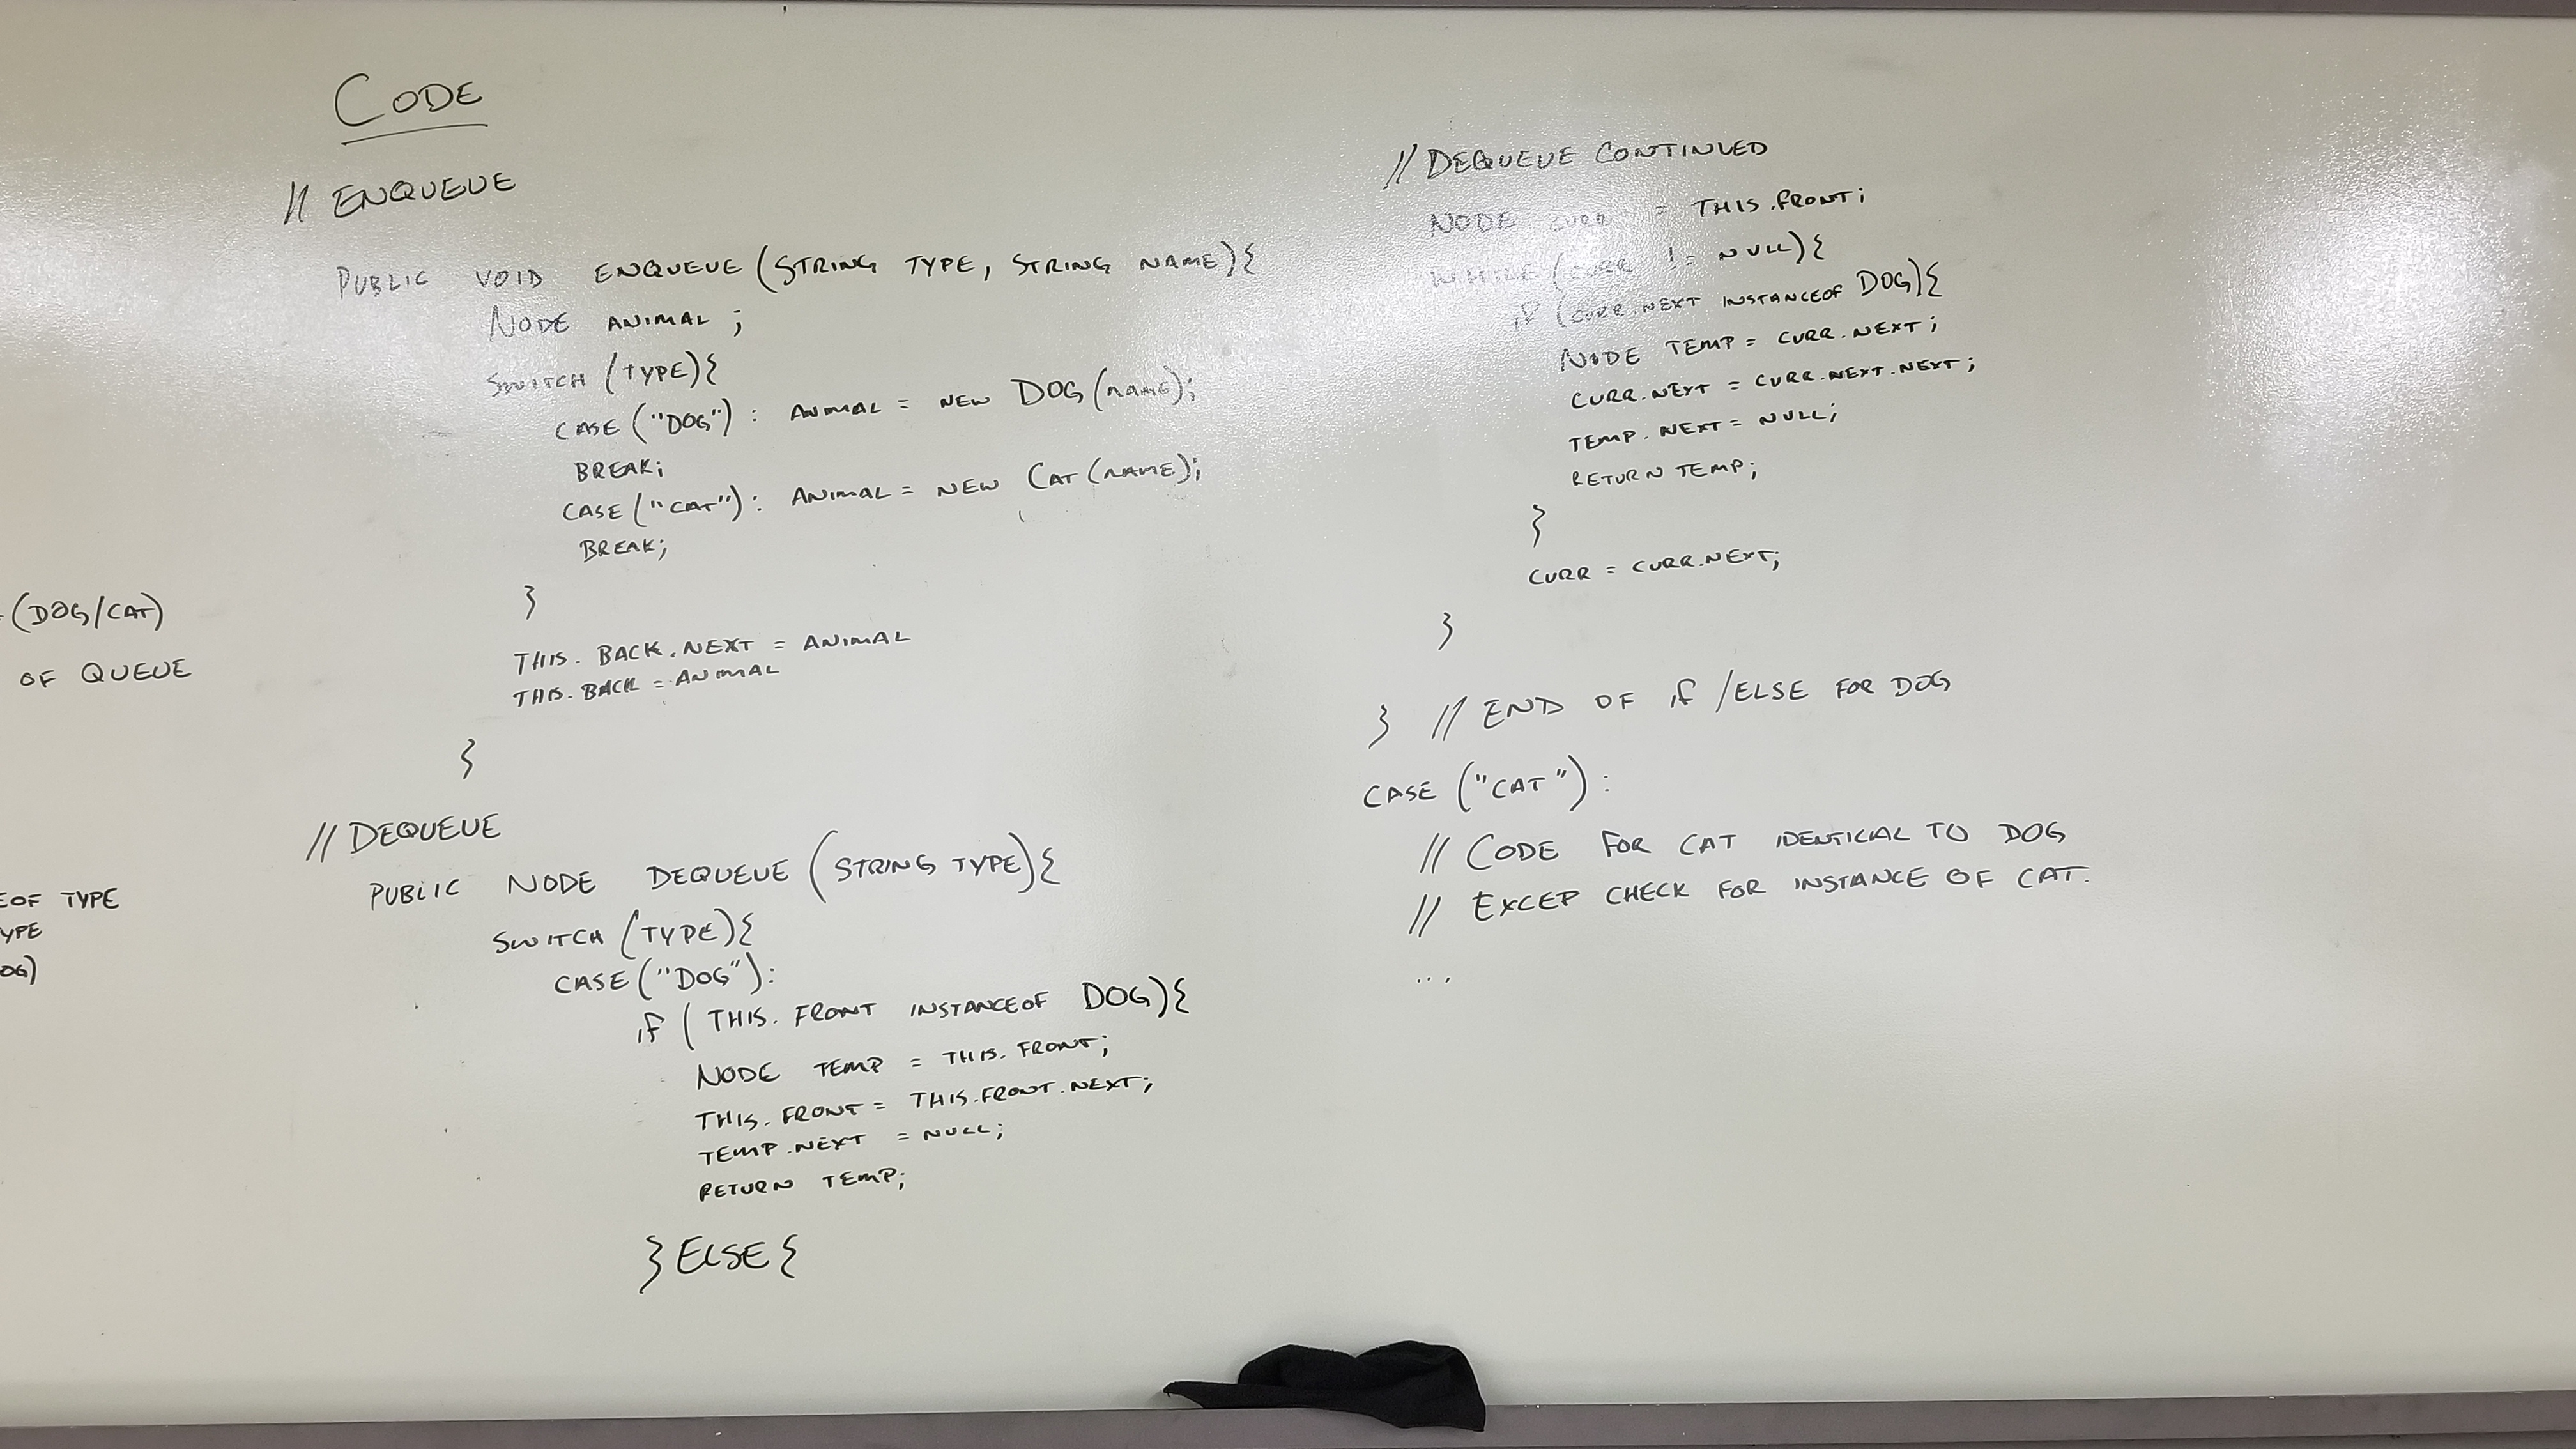 CODE
// ENQUEUE
PUBLIC VOID ENQUEUE (STRING TYPE, STRING NAME){
NODE ANIMAL ;
SWITCH (TYPE){
CASE ("DOG") : ANIMAL = NEW DOG (NAME);
BREAK;
CASE ("CAT") : ANIMAL = NEW CAT (NAME);
BREAK;
}
THIS. BACK. NEXT = ANIMAL
THIS. BACK = ANIMAL
}
// DEQUEUE
PUBLIC NODE DEQUEUE (STRING TYPE){
SWITCH (TYPE){
CASE ("DOG"):
if ( THIS. FRONT INSTANCEOF DOG){
NODE TEMP = THIS. FRONT;
THIS. FRONT = THIS.FRONT.NEXT;
TEMP.NEXT = NULL;
RETURN TEMP;
} ELSE {
// DEQUEUE CONTINUED
NODE CURR = THIS.FRONT;
WHILE (CURR != NULL){
if (CURR.NEXT INSTANCEOF DOG){
NODE TEMP = CURR.NEXT;
CURR.NEXT = CURR.NEXT.NEXT;
TEMP. NEXT = NULL;
RETURN TEMP;
}
CURR = CURR.NEXT;
}
} // END OF if /ELSE FOR DOG
CASE ("CAT") :
// CODE FOR CAT IDENTICAL TO DOG
// EXCEP CHECK FOR INSTANCE OF CAT.
...
(DOG/CAT)
OF QUEUE
EOF TYPE
YPE
OG)